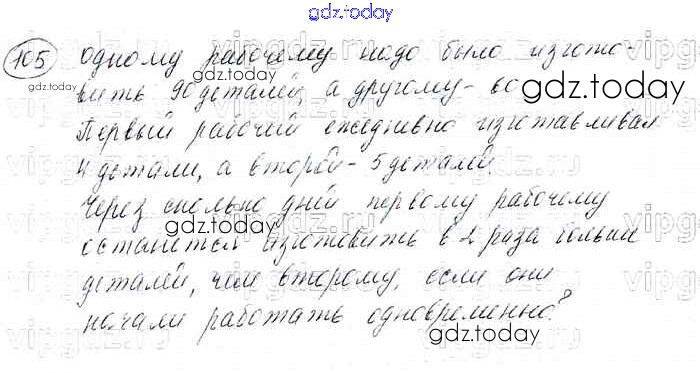 gdz.today
105 Одному рабочему надо было изгото-
gdz.today
вить 90 деталей, а другому - 60 gdz.today
Первый рабочий ежедневно изготавливал
4 детали, а второй - 5 деталей.
Через сколько дней первому рабочему
останется изготовить в 2 раза больше
деталей, чем второму, если они
начали работать одновременно?
gdz.today
gdz.today